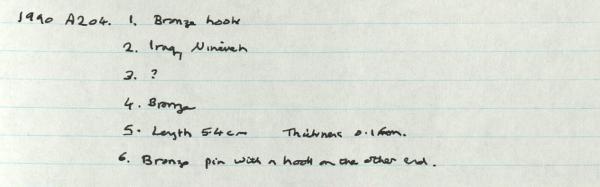 1990 A204. 1. Bronze hook
2. Iraq, Nineveh
3. ?
4. Bronze
5. Length 54cm Thickness
6. Bronze pin with a hook on the other end.